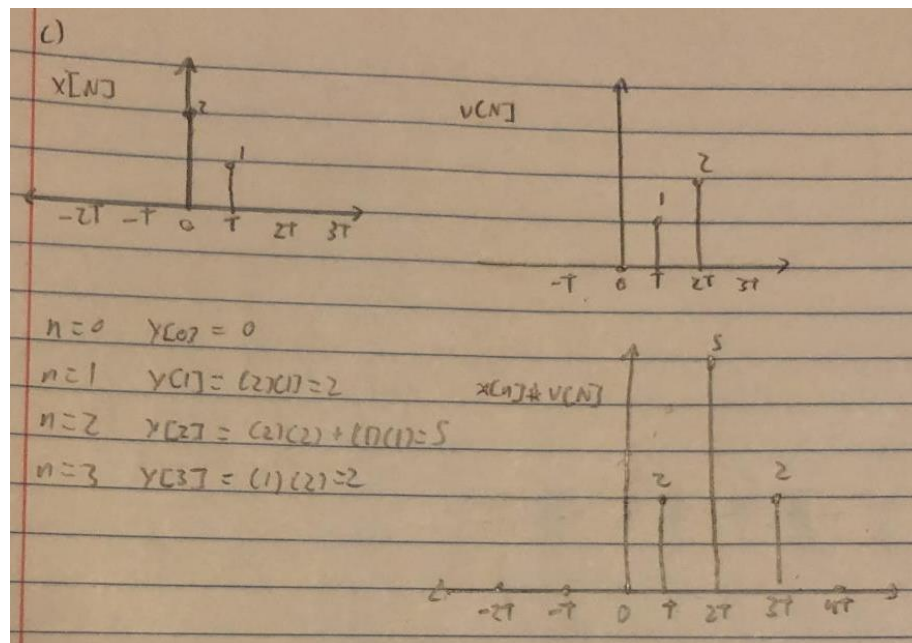 c)
X[N]
2
1
-2T -T 0 T 2T 3T
V[N]
1
2
-T 0 T 2T 3T
n=0 Y[0] = 0
n=1 Y(1] = (2)(1)=2
n=2 Y[2] = (2)(2) + (1)(1)=5
n=3 Y[3] = (1)(2)=2
x[n]*V[N]
2
5
2
-2T -T 0 T 2T 3T 4T